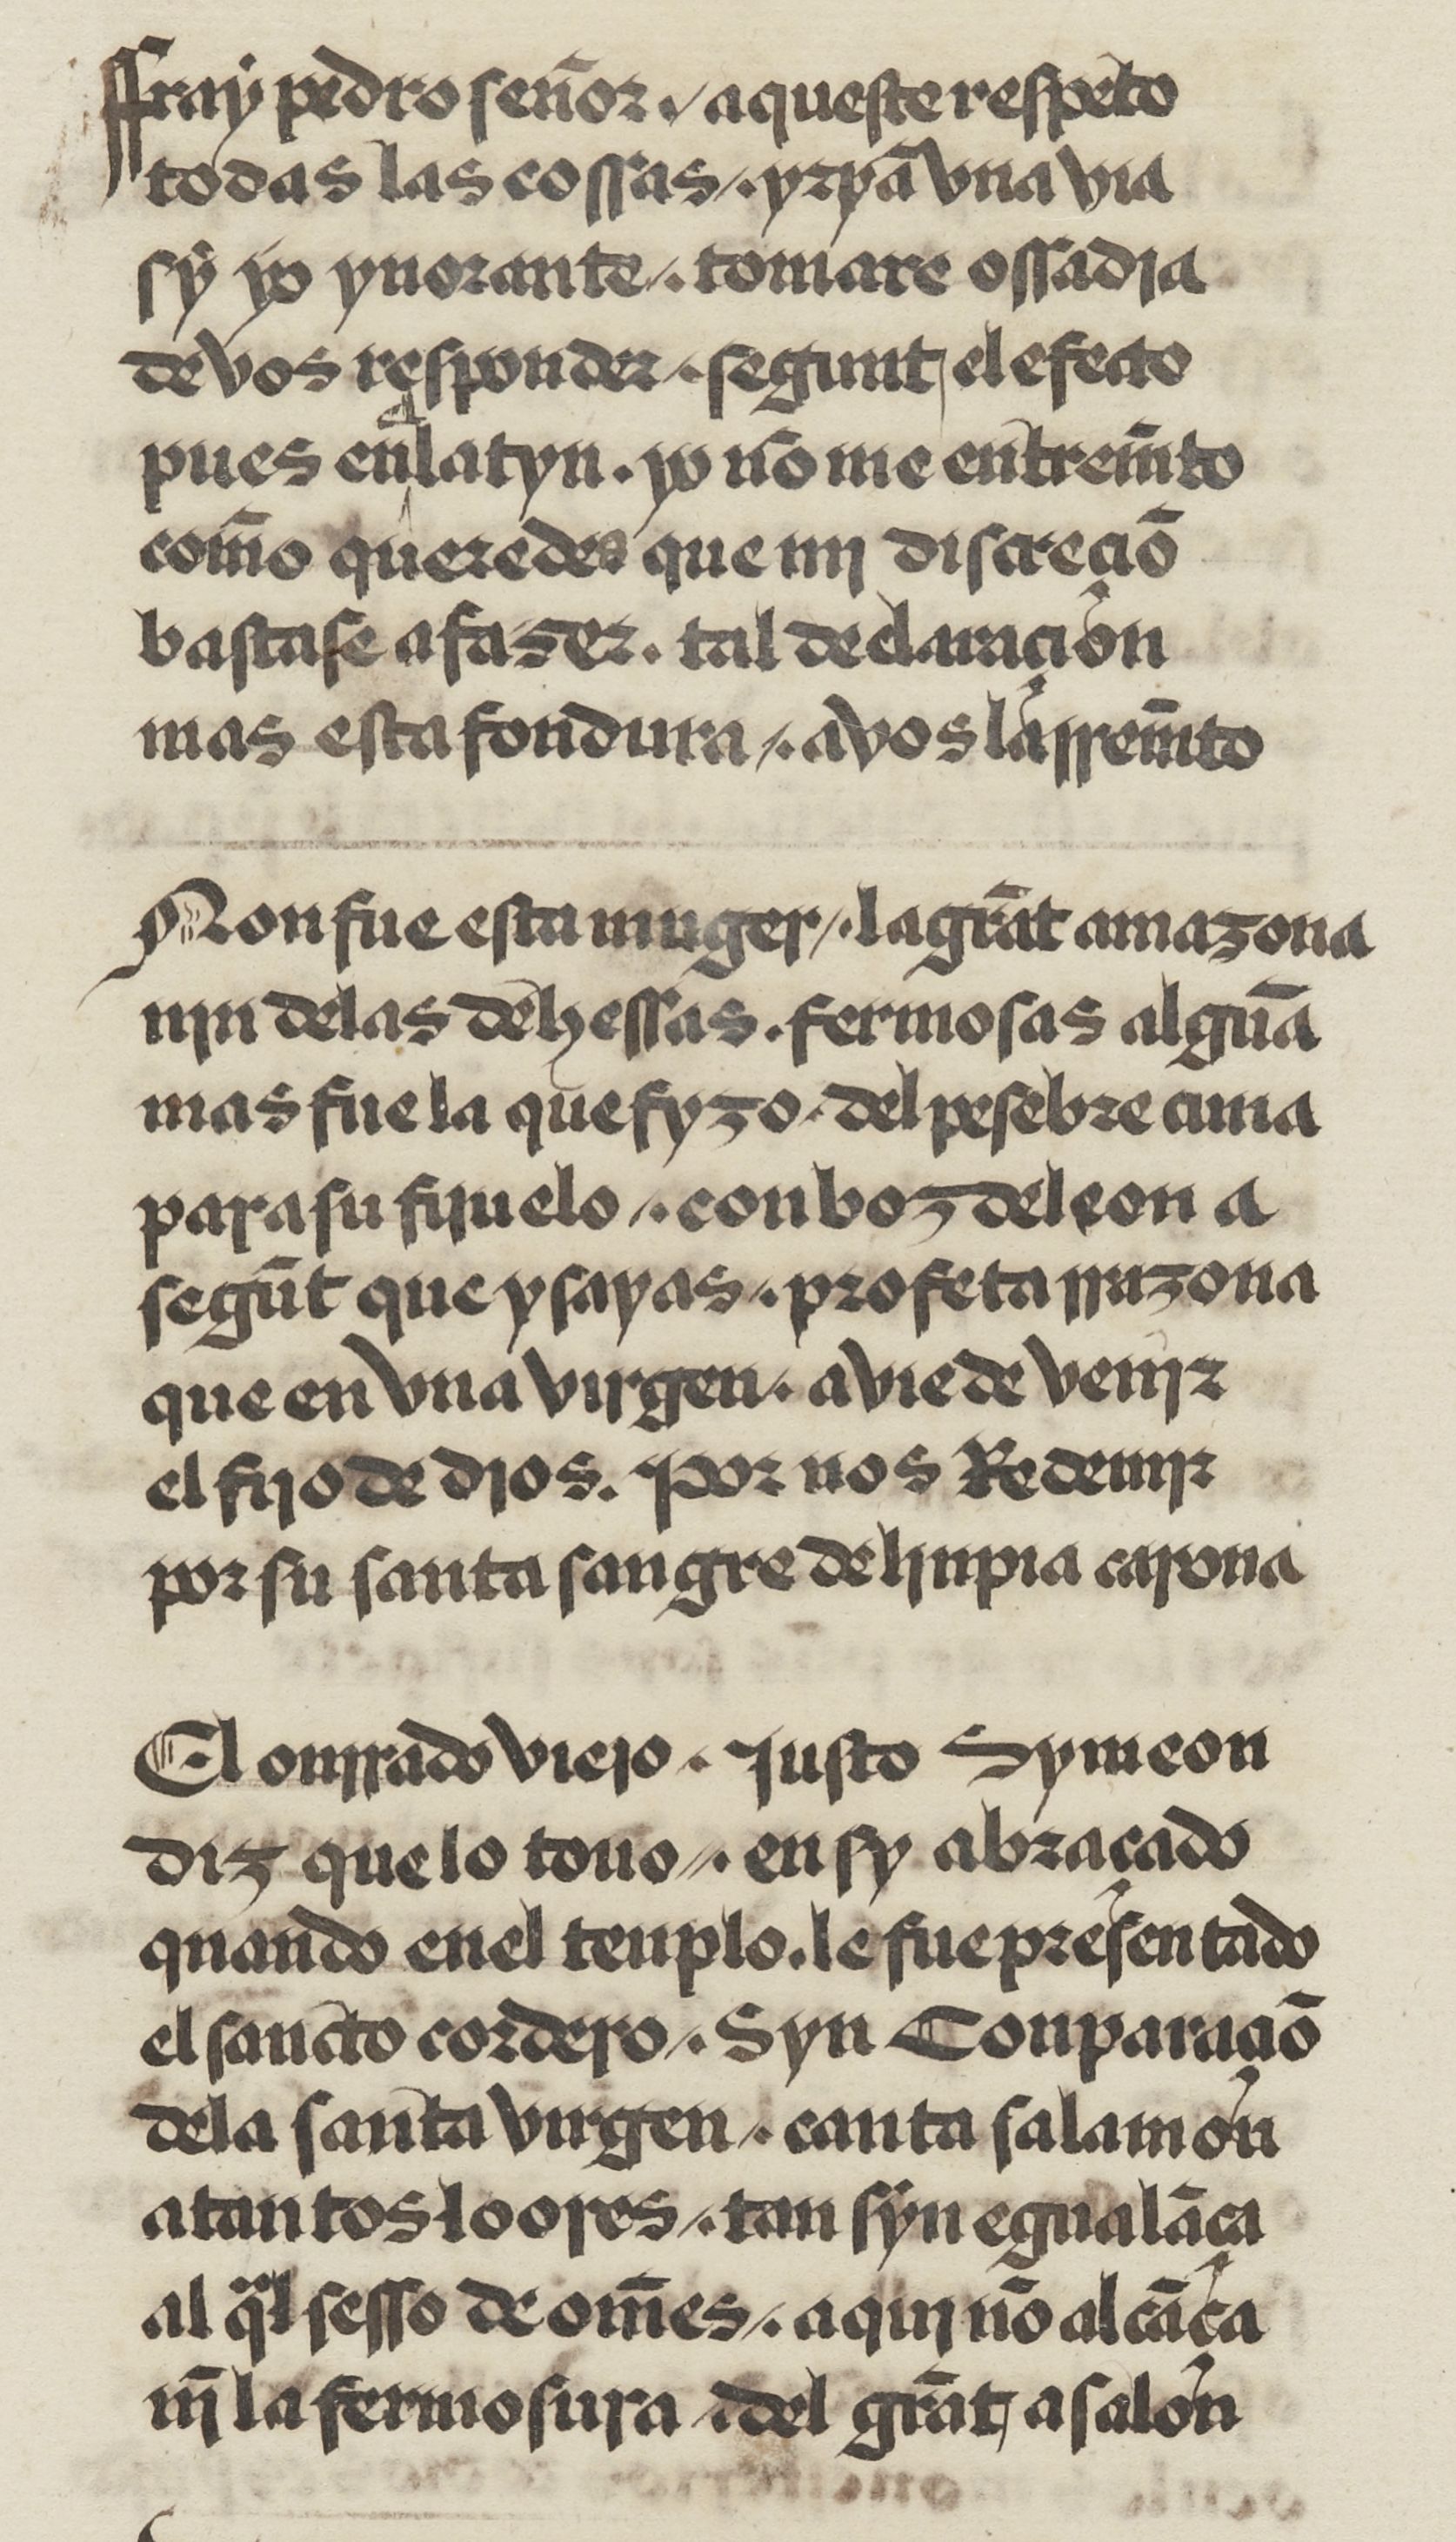 ffray pedro señor ./ aqueste respeto
todas las cossas /. yrpã vna via
sy yo ynorante /. tomare ossadia
de vos responder /. segunt el efecto
pues en latyn . yo nõ me entremẽto
com̃o queredes que mj discreciõ
bastase a fazer . tal declaraçion
mas esta fondura /. a vos la rremẽto
Non fue esta muger /. la grãt amazona
njn delas dehessas . fermosas algũa
mas fue la que fyzo . del pesebre cuna
para su fijuelo /. con boz de leona
segũt que ysayas . profeta rrazona
que en vna virgen . avie de venjr
el fijo de djos . Por nos Redemjr
por su santa sangre de linpia carona
El onrrado viejo . Justo Symeon
diz que lo touo /. en sy abraçado
quando enel tenplo . le fue presentado
el sancto cordero /. Syn Conparaciõ
dela santa virgen /. canta salamon
atantos loores /. tan syn egualãça
al q̃l sesso de om̃es /. aquj nõ alcãça
nj̃ la fermosura . del grãt asalon